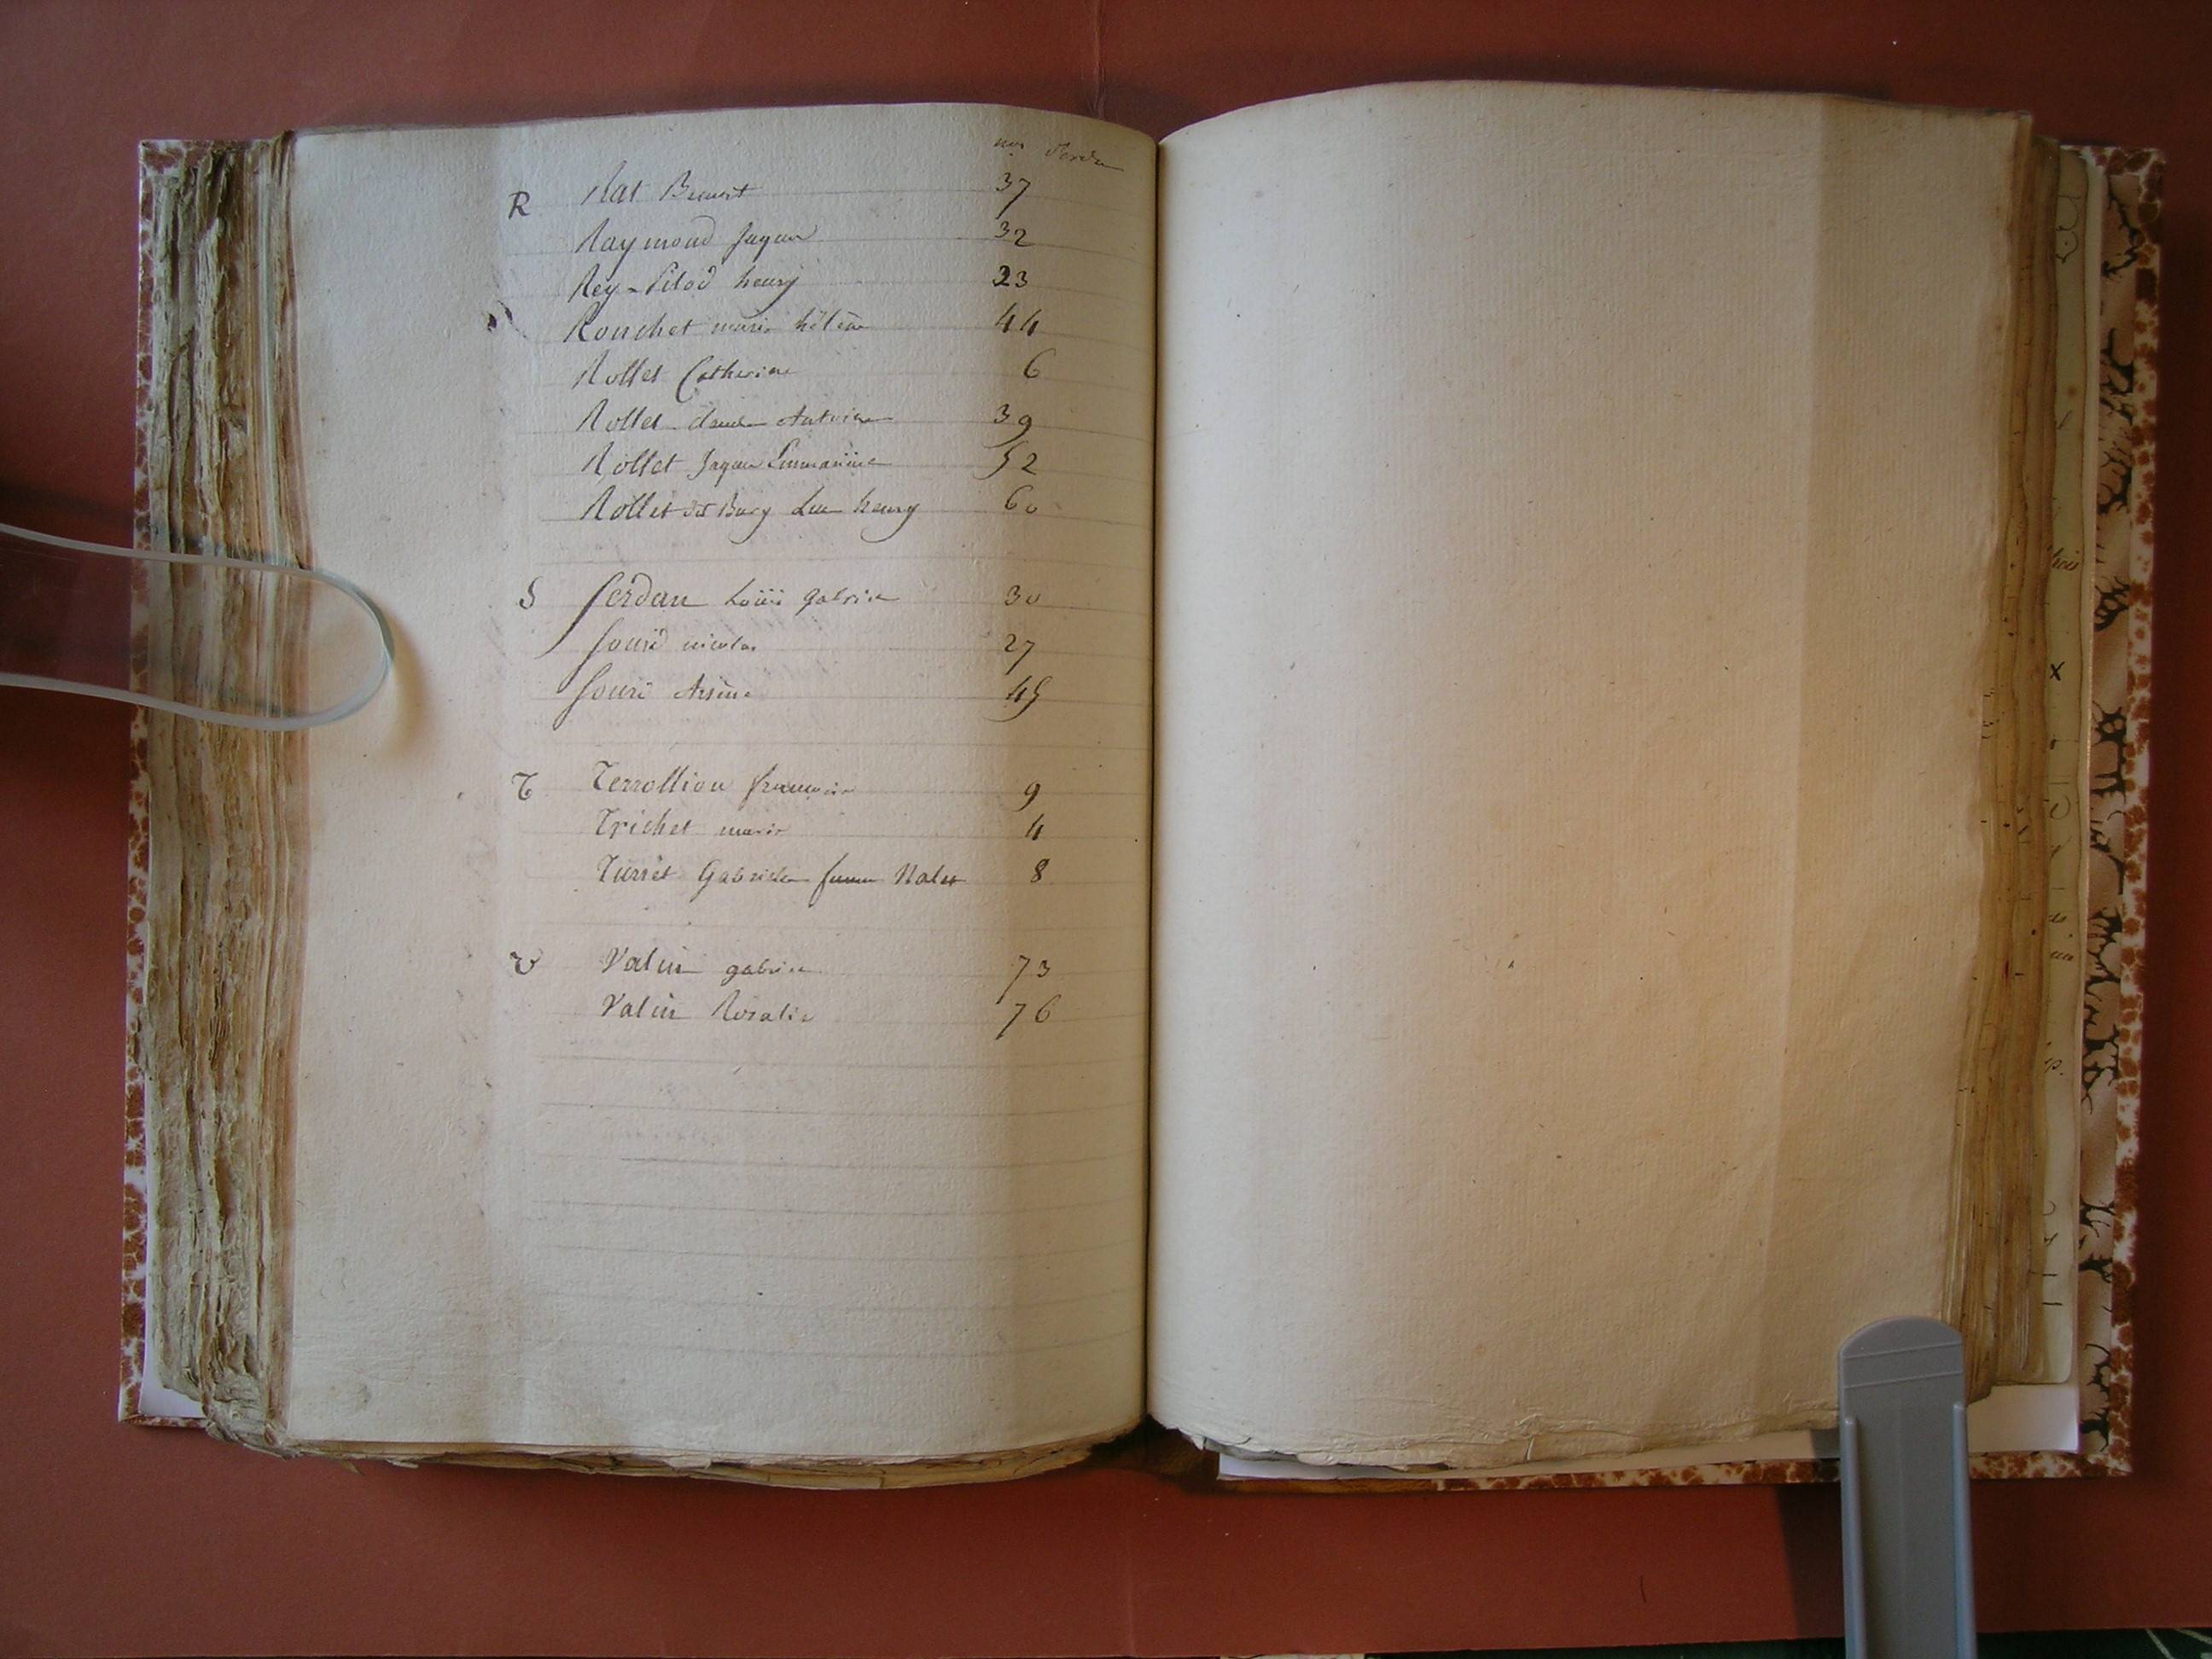 nos d'ordre
R Rat Benoit 37
Raymond Jaques 32
Rey-Pilod henry 23
Rouchet marie hélène 44
Rollet Catherine 6
Rollet Antoine 39
Rollet Jaques 52
Rollet dit Burg Luc henry 60
S Serdan Louis gabriel 30
Souri nicolas 27
Souri Arsène 45
T Terrollion françoise 9
Trichet marie 4
Turret Gabrielle femme Nalet 8
V Valin gabriel 73
Valin Rosalie 76